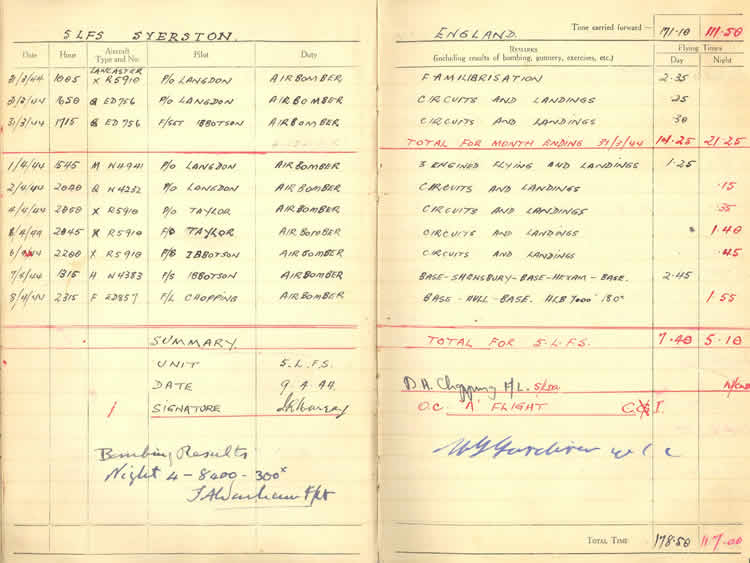 SLFS SYERSTON.
ENGLAND. Time carried forward:— 171·10 111·50
Date Hour Aircraft Type and No. Pilot Duty REMARKS (including results of bombing, gunnery, exercises, etc.) Flying Times Day Night
LANCASTER
31/3/44 1005 X R5910 P/O LANGDON AIR BOMBER FAMILIBRISATION 2·35
31/3/44 1650 Q ED756 P/O LANGDON AIR BOMBER CIRCUITS AND LANDINGS 25
31/3/44 1715 Q ED756 F/SGT IBBOTSON AIR BOMBER CIRCUITS AND LANDINGS 30
TOTAL FOR MONTH ENDING 31/3/44 14·25 21·25
1/4/44 1545 M W4941 P/O LANGDON AIR BOMBER 3 ENGINED FLYING AND LANDINGS 1·25
2/4/44 2040 Q W4232 P/O LANGDON AIR BOMBER CIRCUITS AND LANDINGS ·15
4/4/44 2050 X R5910 P/O TAYLOR AIR BOMBER CIRCUITS AND LANDINGS ·35
2045 X R5910 TAYLOR AIR BOMBER CIRCUITS AND LANDINGS 1·40
2200 X R5910 IBBOTSON AIR BOMBER CIRCUITS AND LANDINGS ·45
1315 H W4383 F/S IBBOTSON AIR BOMBER BASE- -BASE-HEXAM-BASE. 2·45
8/4/44 2315 F ED857 F/L CHOPPING AIR BOMBER BASE-HULL-BASE. HLB 7000' 180° 1·55
SUMMARY. TOTAL FOR S.L.F.S. 7·40 5·10
UNIT S.L.F.S.
DATE 9.4.44.
D.H. Chopping F/L.
SIGNATURE
O.C. 'A' FLIGHT
Bombing Results
Night 4 – 8400 – 300x
TOTAL TIME 178·50 117·00